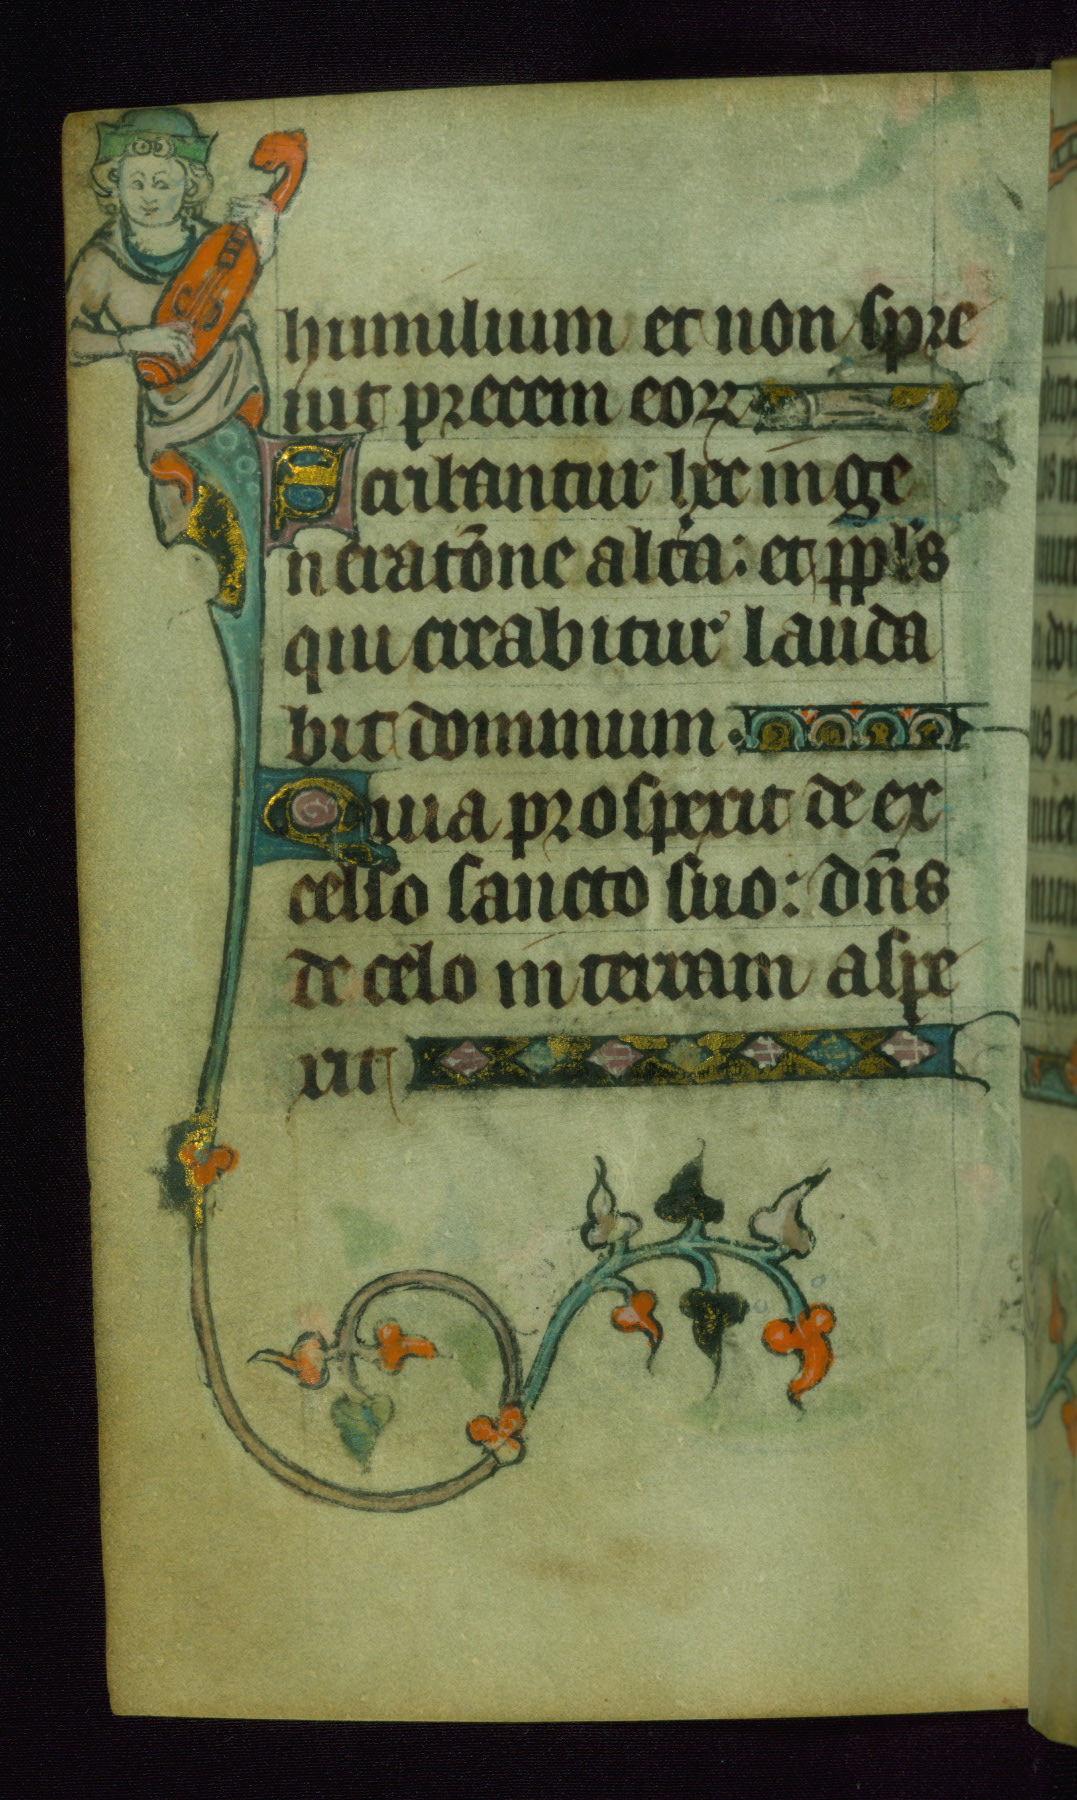 humilium et non spre
uit precem eorꝝ
Scribantur hec in ge
neratõne alt̾a: et ppl's
qui creabitur lauda
bit dominum.
Quia prospexit de ex
celso sancto suo: dñs
de celo in terram aspe
xit